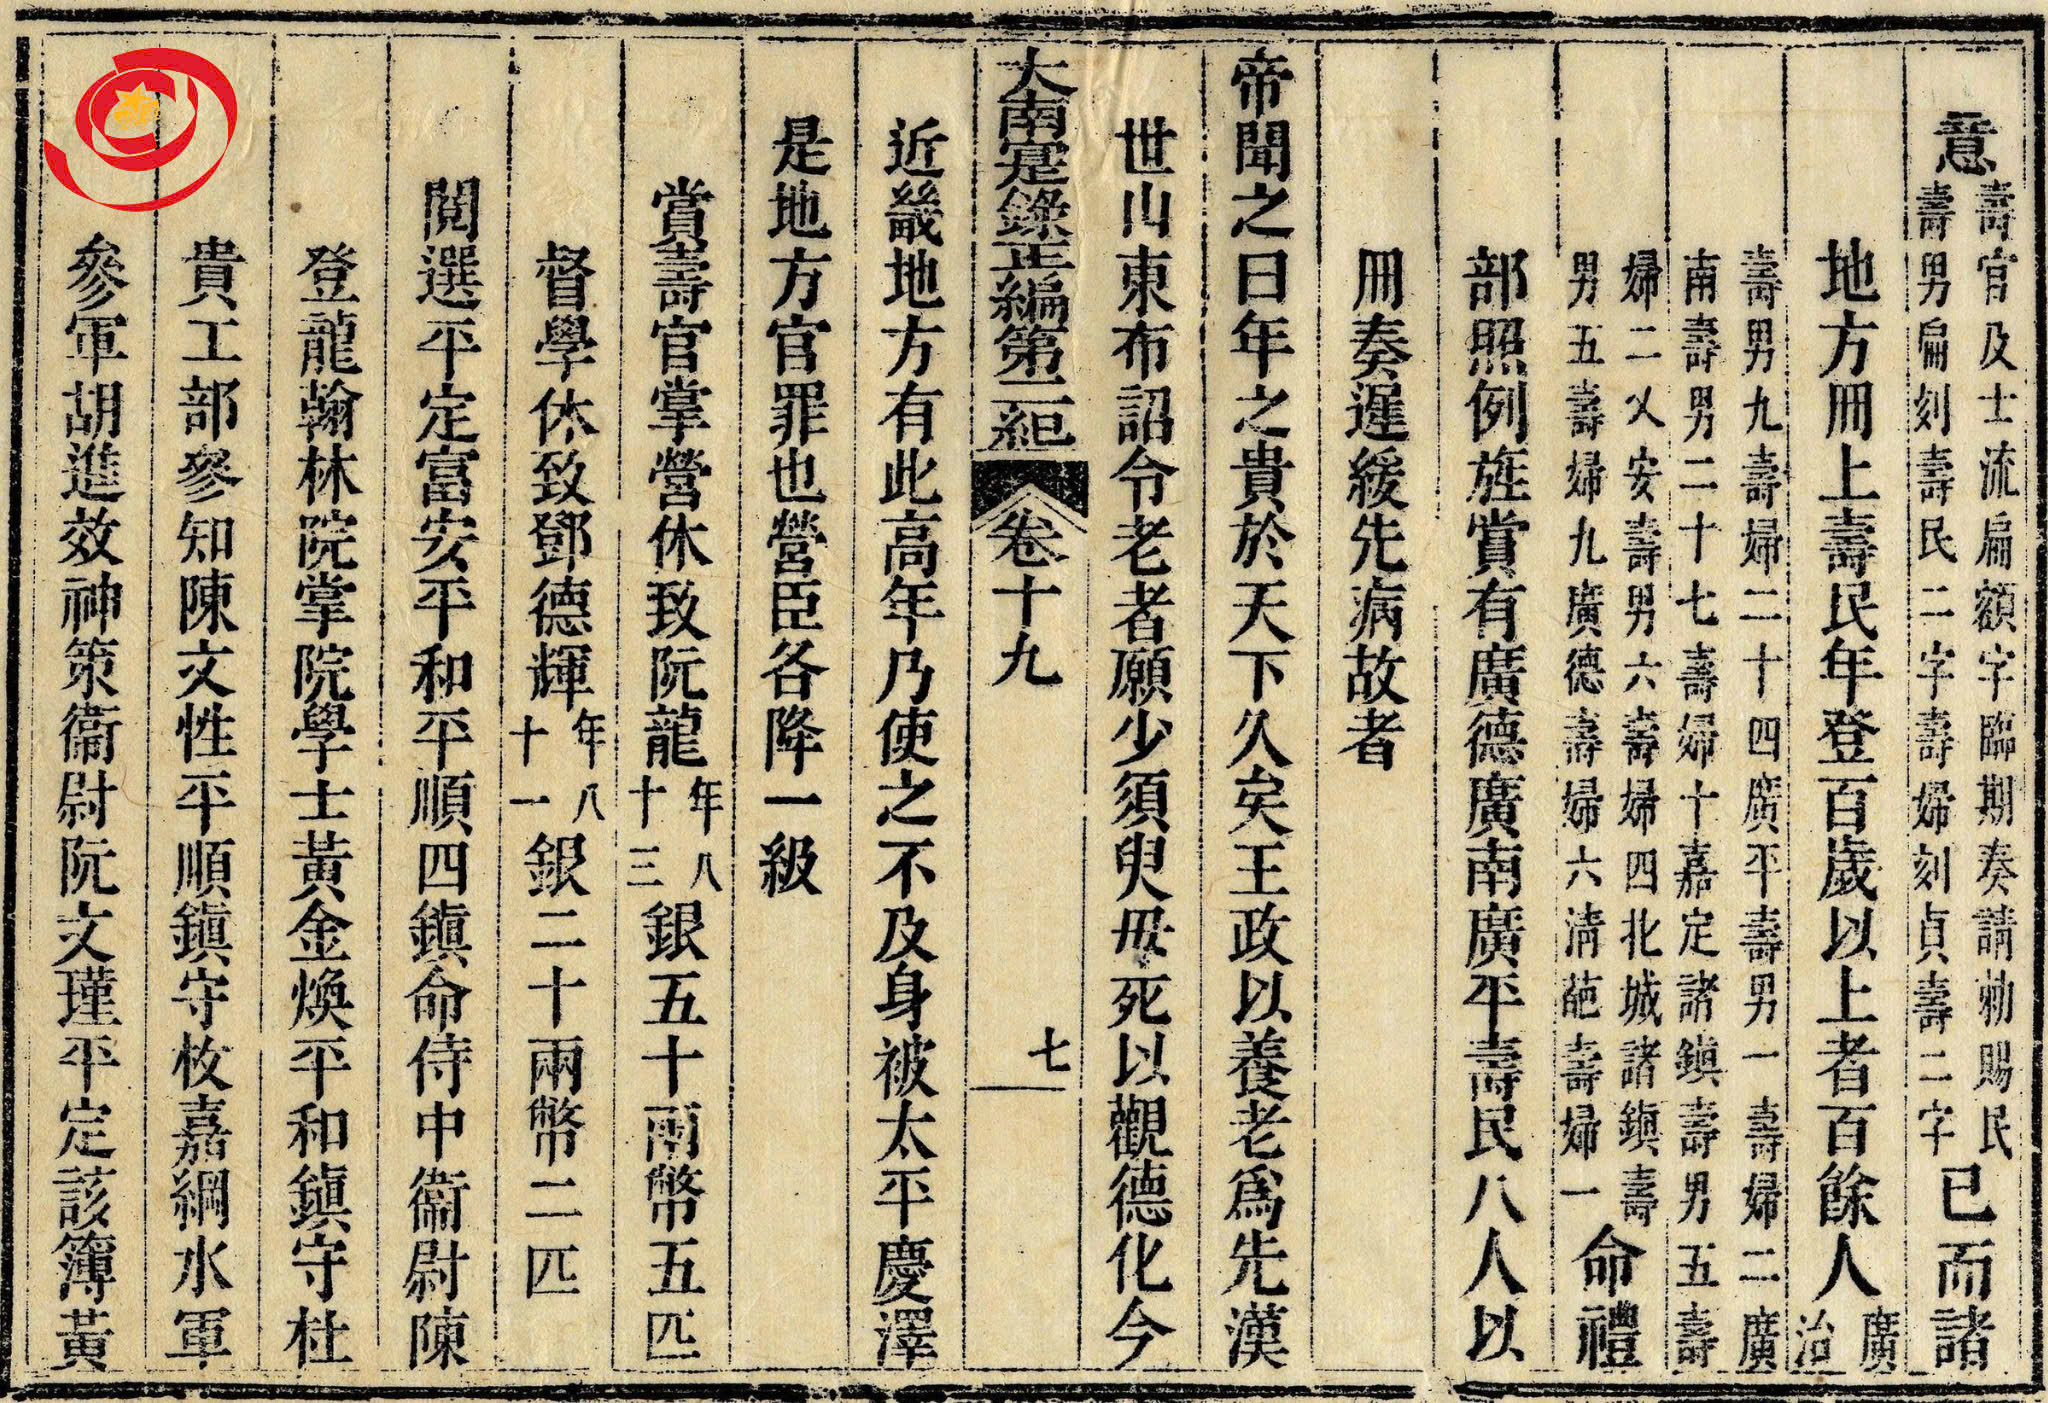 意壽官及士流扁額字臨期奏請勅賜民壽男扁刻壽民二字壽婦刻貞壽二字已而諸
地方冊上壽民年登百歲以上者百餘人廣治
壽男九壽婦二十四廣平壽男一壽婦二廣南壽男二十七壽婦十嘉定諸鎮壽男五壽
婦二乂安壽男六壽婦四北城諸鎮壽男五壽婦九廣德壽婦六清葩壽婦一命禮
部照例旌賞有廣德廣南廣平壽民八人以
冊奏遲緩先病故者
帝聞之曰年之貴於天下久矣王政以養老爲先漢
世山東布詔令老者願少須臾毋死以觀德化今
大南寔錄正編第二紀 卷十九 七
近畿地方有此高年乃使之不及身被太平慶澤
是地方官罪也營臣各降一級
賞壽官掌營休致阮龍年八十三銀五十兩幣五匹
督學休致鄧德輝年八十一銀二十兩幣二匹
閱選平定富安平和平順四鎮命侍中衞尉陳
登龍翰林院掌院學士黃金煥平和鎮守杜
貴工部參知陳文性平順鎮守枚嘉綱水軍
參軍胡進效神策衞尉阮文瑾平定該簿黃